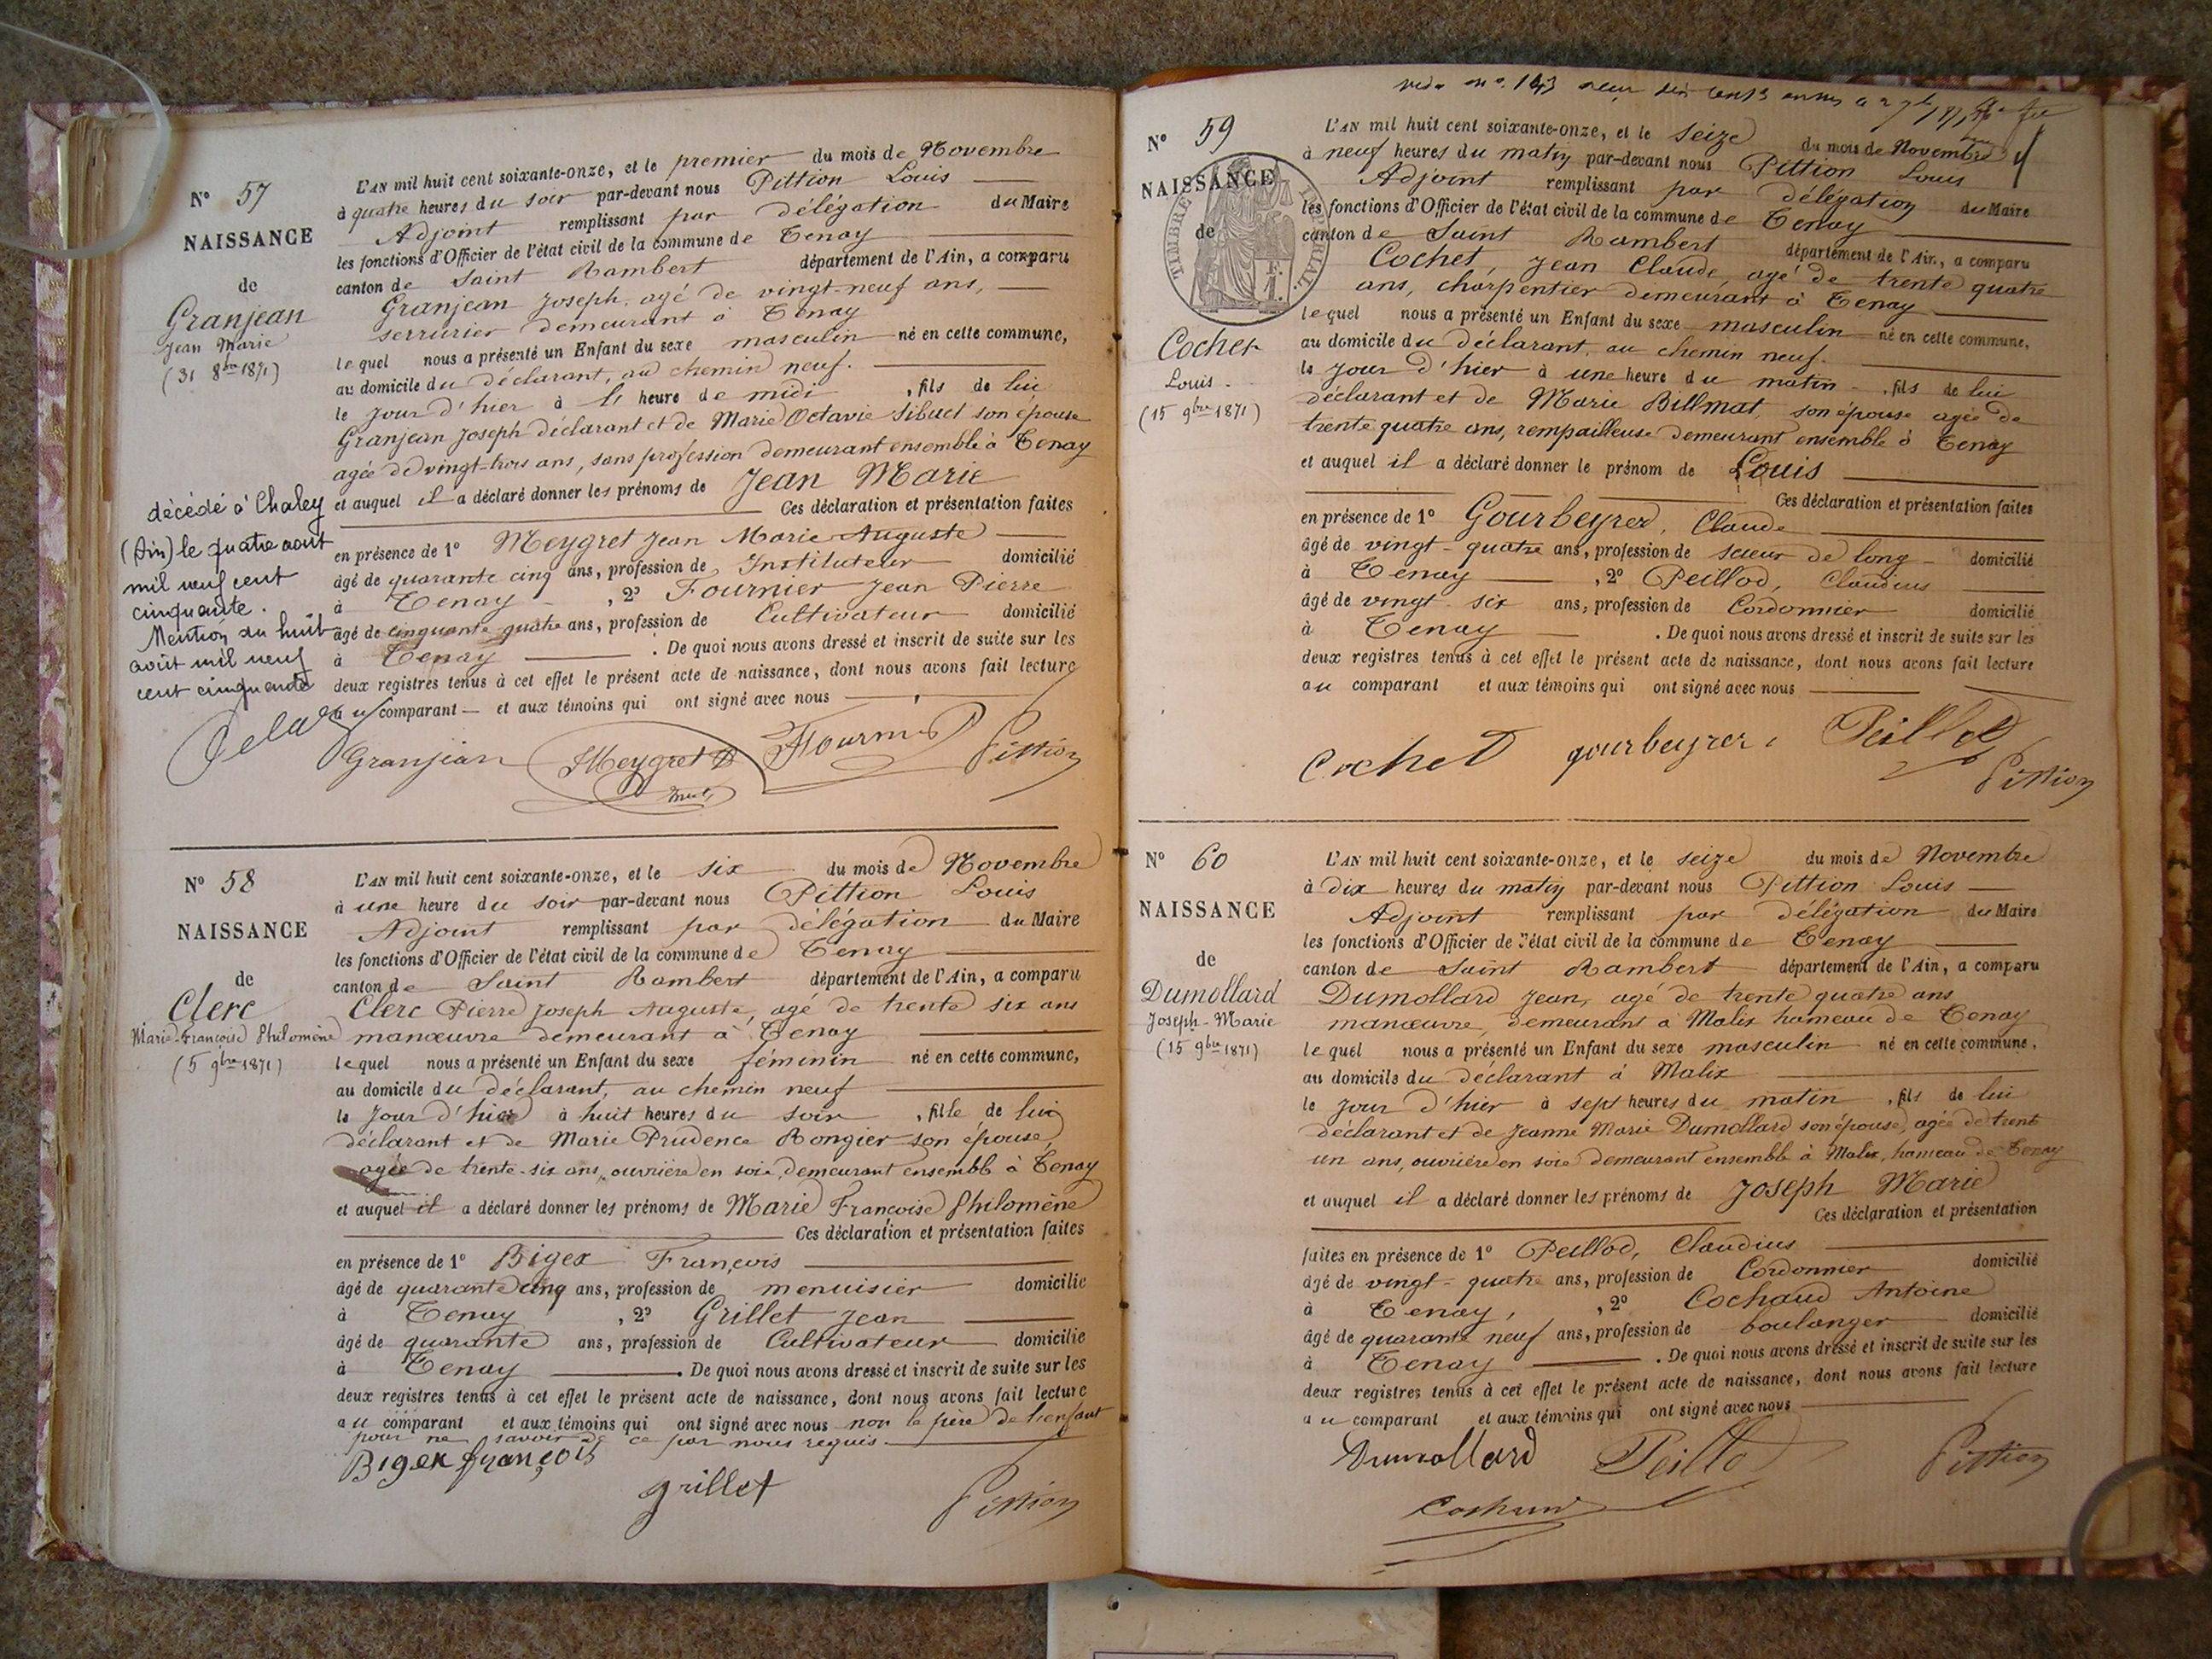 N° 57
NAISSANCE
de
Granjean
Jean Marie
(31 8bre 1871)
décédé à Chaley
(Ain) le quatre aout
mil neuf cent
cinquante.
Mention du huit
août mil neuf
cent cinquante
L'AN mil huit cent soixante-onze, et le premier du mois de Novembre
à quatre heures du soir par-devant nous Pittion Louis
Adjoint remplissant par délégation du Maire
les fonctions d'Officier de l'état civil de la commune de Tenay
canton de Saint Rambert département de l'Ain, a comparu
Granjean Joseph, agé de vingt-neuf ans,
serrurier demeurant à Tenay
lequel nous a présenté un Enfant du sexe masculin né en cette commune,
au domicile du déclarant, au chemin neuf.
le jour d'hier à l' heure de midi, fils de lui
Granjean Joseph déclarant et de Marie Octavie Sibuet son épouse
agée de vingt-trois ans, sans profession demeurant ensemble à Tenay
et auquel il a déclaré donner les prénoms de Jean Marie
Ces déclaration et présentation faites
en présence de 1° Meygret Jean Marie Auguste
âgé de quarante cinq ans, profession de Instituteur domicilié
à Tenay, 2° Fournier Jean Pierre
âgé de cinquante quatre ans, profession de Cultivateur domicilié
à Tenay. De quoi nous avons dressé et inscrit de suite sur les
deux registres tenus à cet effet le présent acte de naissance, dont nous avons fait lecture
au comparant et aux témoins qui ont signé avec nous
Granjean Meygret Fournier Pittion
N° 58
NAISSANCE
de
Clerc
Marie-Françoise Philomène
(5 9bre 1871)
L'AN mil huit cent soixante-onze, et le six du mois de Novembre
à une heure du soir par-devant nous Pittion Louis
Adjoint remplissant par délégation du Maire
les fonctions d'Officier de l'état civil de la commune de Tenay
canton de Saint Rambert département de l'Ain, a comparu
Clerc Pierre Joseph Auguste, agé de trente six ans
manœuvre demeurant à Tenay
lequel nous a présenté un Enfant du sexe féminin né en cette commune,
au domicile du déclarant, au chemin neuf
le jour d'hier à huit heures du soir, fille de lui
déclarant et de Marie Prudence Rongier son épouse,
agée de trente-six ans, ouvrière en soie, demeurant ensemble à Tenay
et auquel il a déclaré donner les prénoms de Marie Françoise Philomène
Ces déclaration et présentation faites
en présence de 1° Bigex François
âgé de quarante cinq ans, profession de menuisier domicilié
à Tenay, 2° Grillet Jean
âgé de quarante ans, profession de Cultivateur domicilié
à Tenay. De quoi nous avons dressé et inscrit de suite sur les
deux registres tenus à cet effet le présent acte de naissance, dont nous avons fait lecture
au comparant et aux témoins qui ont signé avec nous non le père de l'enfant
pour ne savoir de ce par nous requis.
Bigex françois
grillet Pittion
N° 59
NAISSANCE
de
TIMBRE IMPERIAL
Cochet
Louis.
(15 9bre 1871)
L'AN mil huit cent soixante-onze, et le seize du mois de Novembre
à neuf heures du matin par-devant nous Pittion Louis
Adjoint remplissant par délégation du Maire
les fonctions d'Officier de l'état civil de la commune de Tenay
canton de Saint Rambert département de l'Ain, a comparu
Cochet, Jean Claude, agé de trente quatre
ans, charpentier demeurant à Tenay
lequel nous a présenté un Enfant du sexe masculin né en cette commune,
au domicile du déclarant, au chemin neuf.
le jour d'hier à une heure du matin, fils de lui
déclarant et de Marie Billmat, son épouse agée de
trente quatre ans, rempailleuse demeurant ensemble à Tenay
et auquel il a déclaré donner le prénom de Louis
Ces déclaration et présentation faites
en présence de 1° Gourbeyrer, Claude
âgé de vingt-quatre ans, profession de scieur de long domicilié
à Tenay, 2° Peillod, Claudius
âgé de vingt six ans, profession de Cordonnier domicilié
à Tenay. De quoi nous avons dressé et inscrit de suite sur les
deux registres tenus à cet effet le présent acte de naissance, dont nous avons fait lecture
au comparant et aux témoins qui ont signé avec nous
Cochet gourbeyrer Peillod
Pittion
N° 60
NAISSANCE
de
Dumollard
Joseph-Marie
(15 9bre 1871)
L'AN mil huit cent soixante-onze, et le seize du mois de Novembre
à dix heures du matin par-devant nous Pittion Louis
Adjoint remplissant par délégation du Maire
les fonctions d'Officier de l'état civil de la commune de Tenay
canton de Saint Rambert département de l'Ain, a comparu
Dumollard Jean, agé de trente quatre ans
manœuvre, demeurant à Malix hameau de Tenay
lequel nous a présenté un Enfant du sexe masculin né en cette commune,
au domicile du déclarant à Malix
le jour d'hier à sept heures du matin, fils de lui
déclarant et de Jeanne Marie Dumollard son épouse, agée de trent
un ans, ouvrière en soie demeurant ensemble à Malix, hameau de Tenay
et auquel il a déclaré donner les prénoms de Joseph Marie
Ces déclaration et présentation
faites en présence de 1° Peillod, Claudius
âgé de vingt-quatre ans, profession de Cordonnier domicilié
à Tenay, 2° Cochaud Antoine
âgé de quarante neuf ans, profession de boulanger domicilié
à Tenay. De quoi nous avons dressé et inscrit de suite sur les
deux registres tenus à cet effet le présent acte de naissance, dont nous avons fait lecture
au comparant et aux témoins qui ont signé avec nous
Dumollard Peillod Pittion
Cochaud